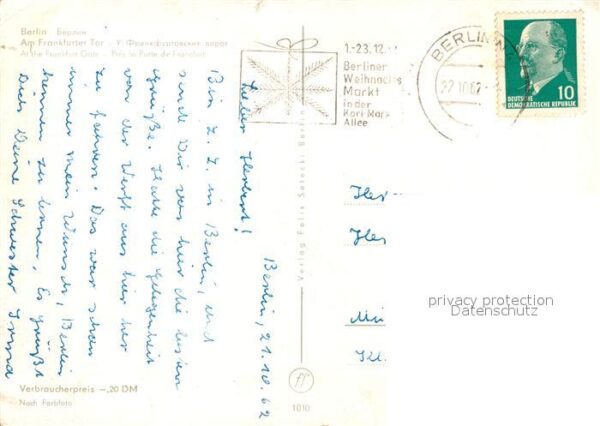 Berlin Берлин
Am Frankfurter Tor - У Франкфуртских ворот
At the Frankfurt Gate - Près la Porte de Francfort
1.-23.12.
Berliner
Weihnachts
Markt
in der
Karl-Marx-
Allee
BERLIN
22.10.62
DEUTSCHE
DEMOKRATISCHE REPUBLIK
10
Berlin, 21.10.62
Lieber Herbert!
Bin z. Z. in Berlin, und
sende Dir von hier die besten
Grüße. Hatte die Gelegenheit
von der Werft aus hier her
zu fahren. Das war schon
immer mein Wunsch, Berlin
kennen zu lernen. Es grüßt
Dich Deine Schwester Irma
Verlag Felix Setecki Berlin
Her
Her
privacy protection
Datenschutz
Kl.
Verbraucherpreis -,20 DM
Nach Farbfoto
1010